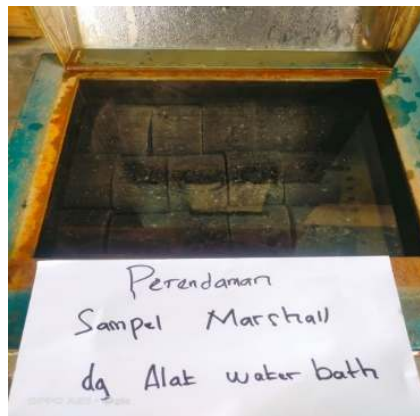 Perendaman
Sampel Marshall
dg Alat water bath